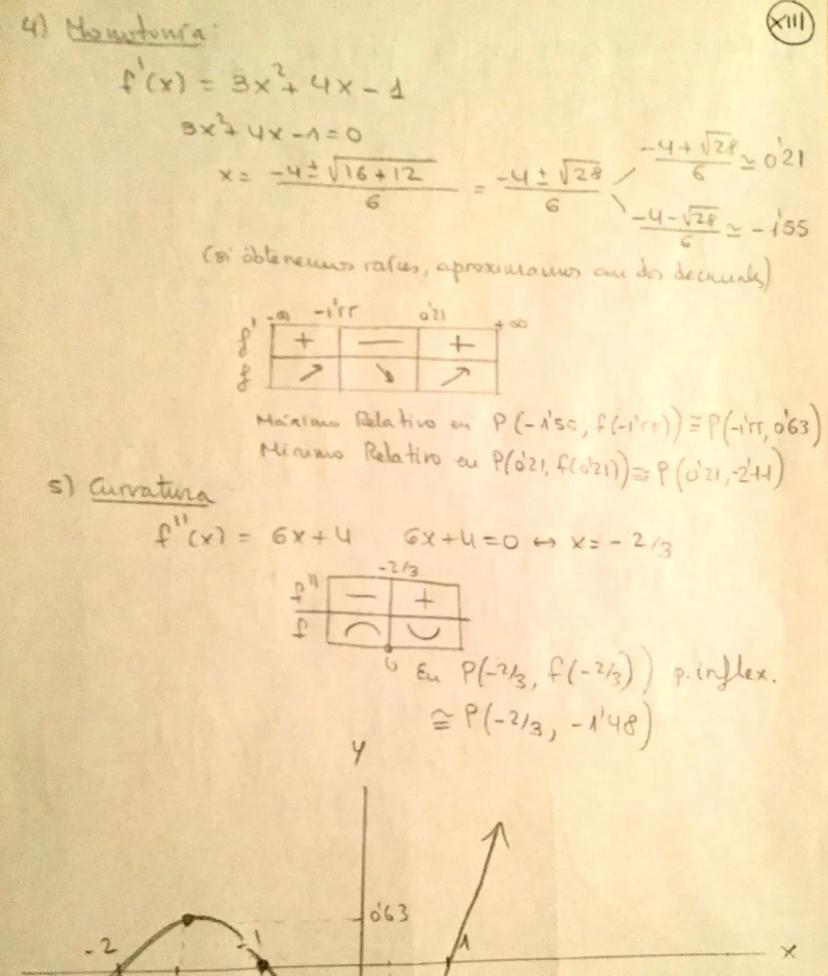 XIII
4) Monotonía:
f'(x) = 3x² + 4x - 1
3x² + 4x - 1 = 0
x = (-4 ± √(16 + 12))/6 = (-4 ± √28)/6
(-4 + √28)/6 ≃ 0'21
(-4 - √28)/6 ≃ -1'55
(si obtenemos raíces, aproximamos con dos decimales)
-∞ -1'55 0'21 +∞
f' + — +
f ↗ ↘ ↗
Máximo Relativo en P(-1'55, f(-1'55)) ≅ P(-1'55, 0'63)
Mínimo Relativo en P(0'21, f(0'21)) ≅ P(0'21, -2'11)
5) Curvatura
f''(x) = 6x + 4 6x + 4 = 0 ↔ x = -2/3
-2/3
f'' — +
f ⌢ ⌣
En P(-2/3, f(-2/3)) p. inflex.
≅ P(-2/3, -1'48)
Y
0'63
-2 -1 1 X